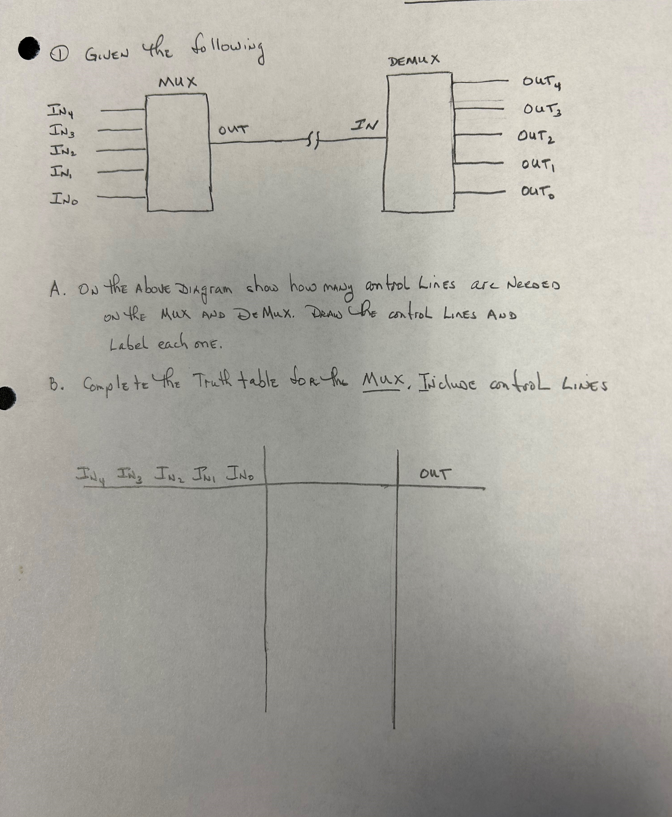 ① GIVEN the following
MUX
DEMUX
IN4
IN3
IN2
IN1
IN0
OUT
IN
OUT4
OUT3
OUT2
OUT1
OUT0
A. ON the Above Diagram show how many control Lines are NEEDED
ON the MUX AND DeMUX. DRAW the control LINES AND
Label each ONE.
B. Complete the Truth table for the MUX. Include control LINES
IN4 IN3 IN2 IN1 IN0
OUT